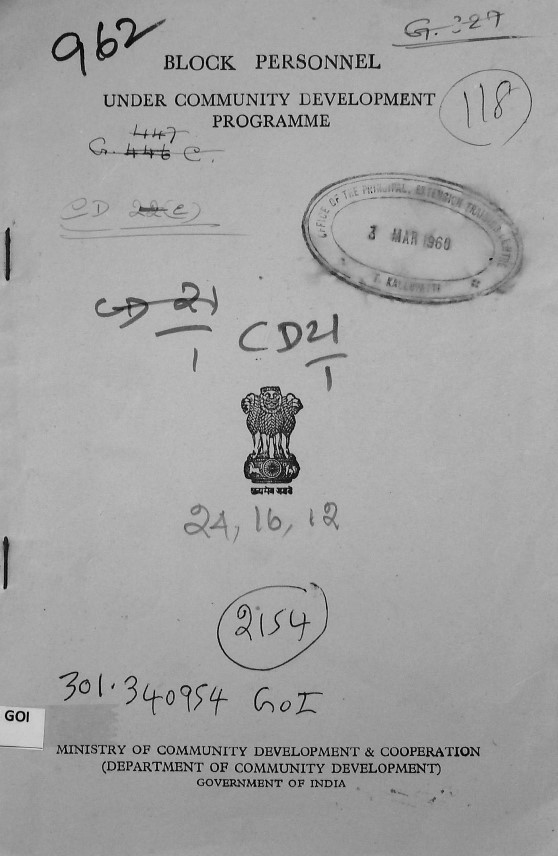 962
G. 327
BLOCK PERSONNEL
UNDER COMMUNITY DEVELOPMENT
PROGRAMME
118
447
G. 446 C.
CD 22(C)
OFFICE OF THE PRINCIPAL, EXTENSION TRAINING CENTRE
3 MAR 1960
CD 21
1
CD 21
1
सत्यमेव जयते
24, 16, 12
2154
301.340954 GOI
GOI
MINISTRY OF COMMUNITY DEVELOPMENT & COOPERATION
(DEPARTMENT OF COMMUNITY DEVELOPMENT)
GOVERNMENT OF INDIA